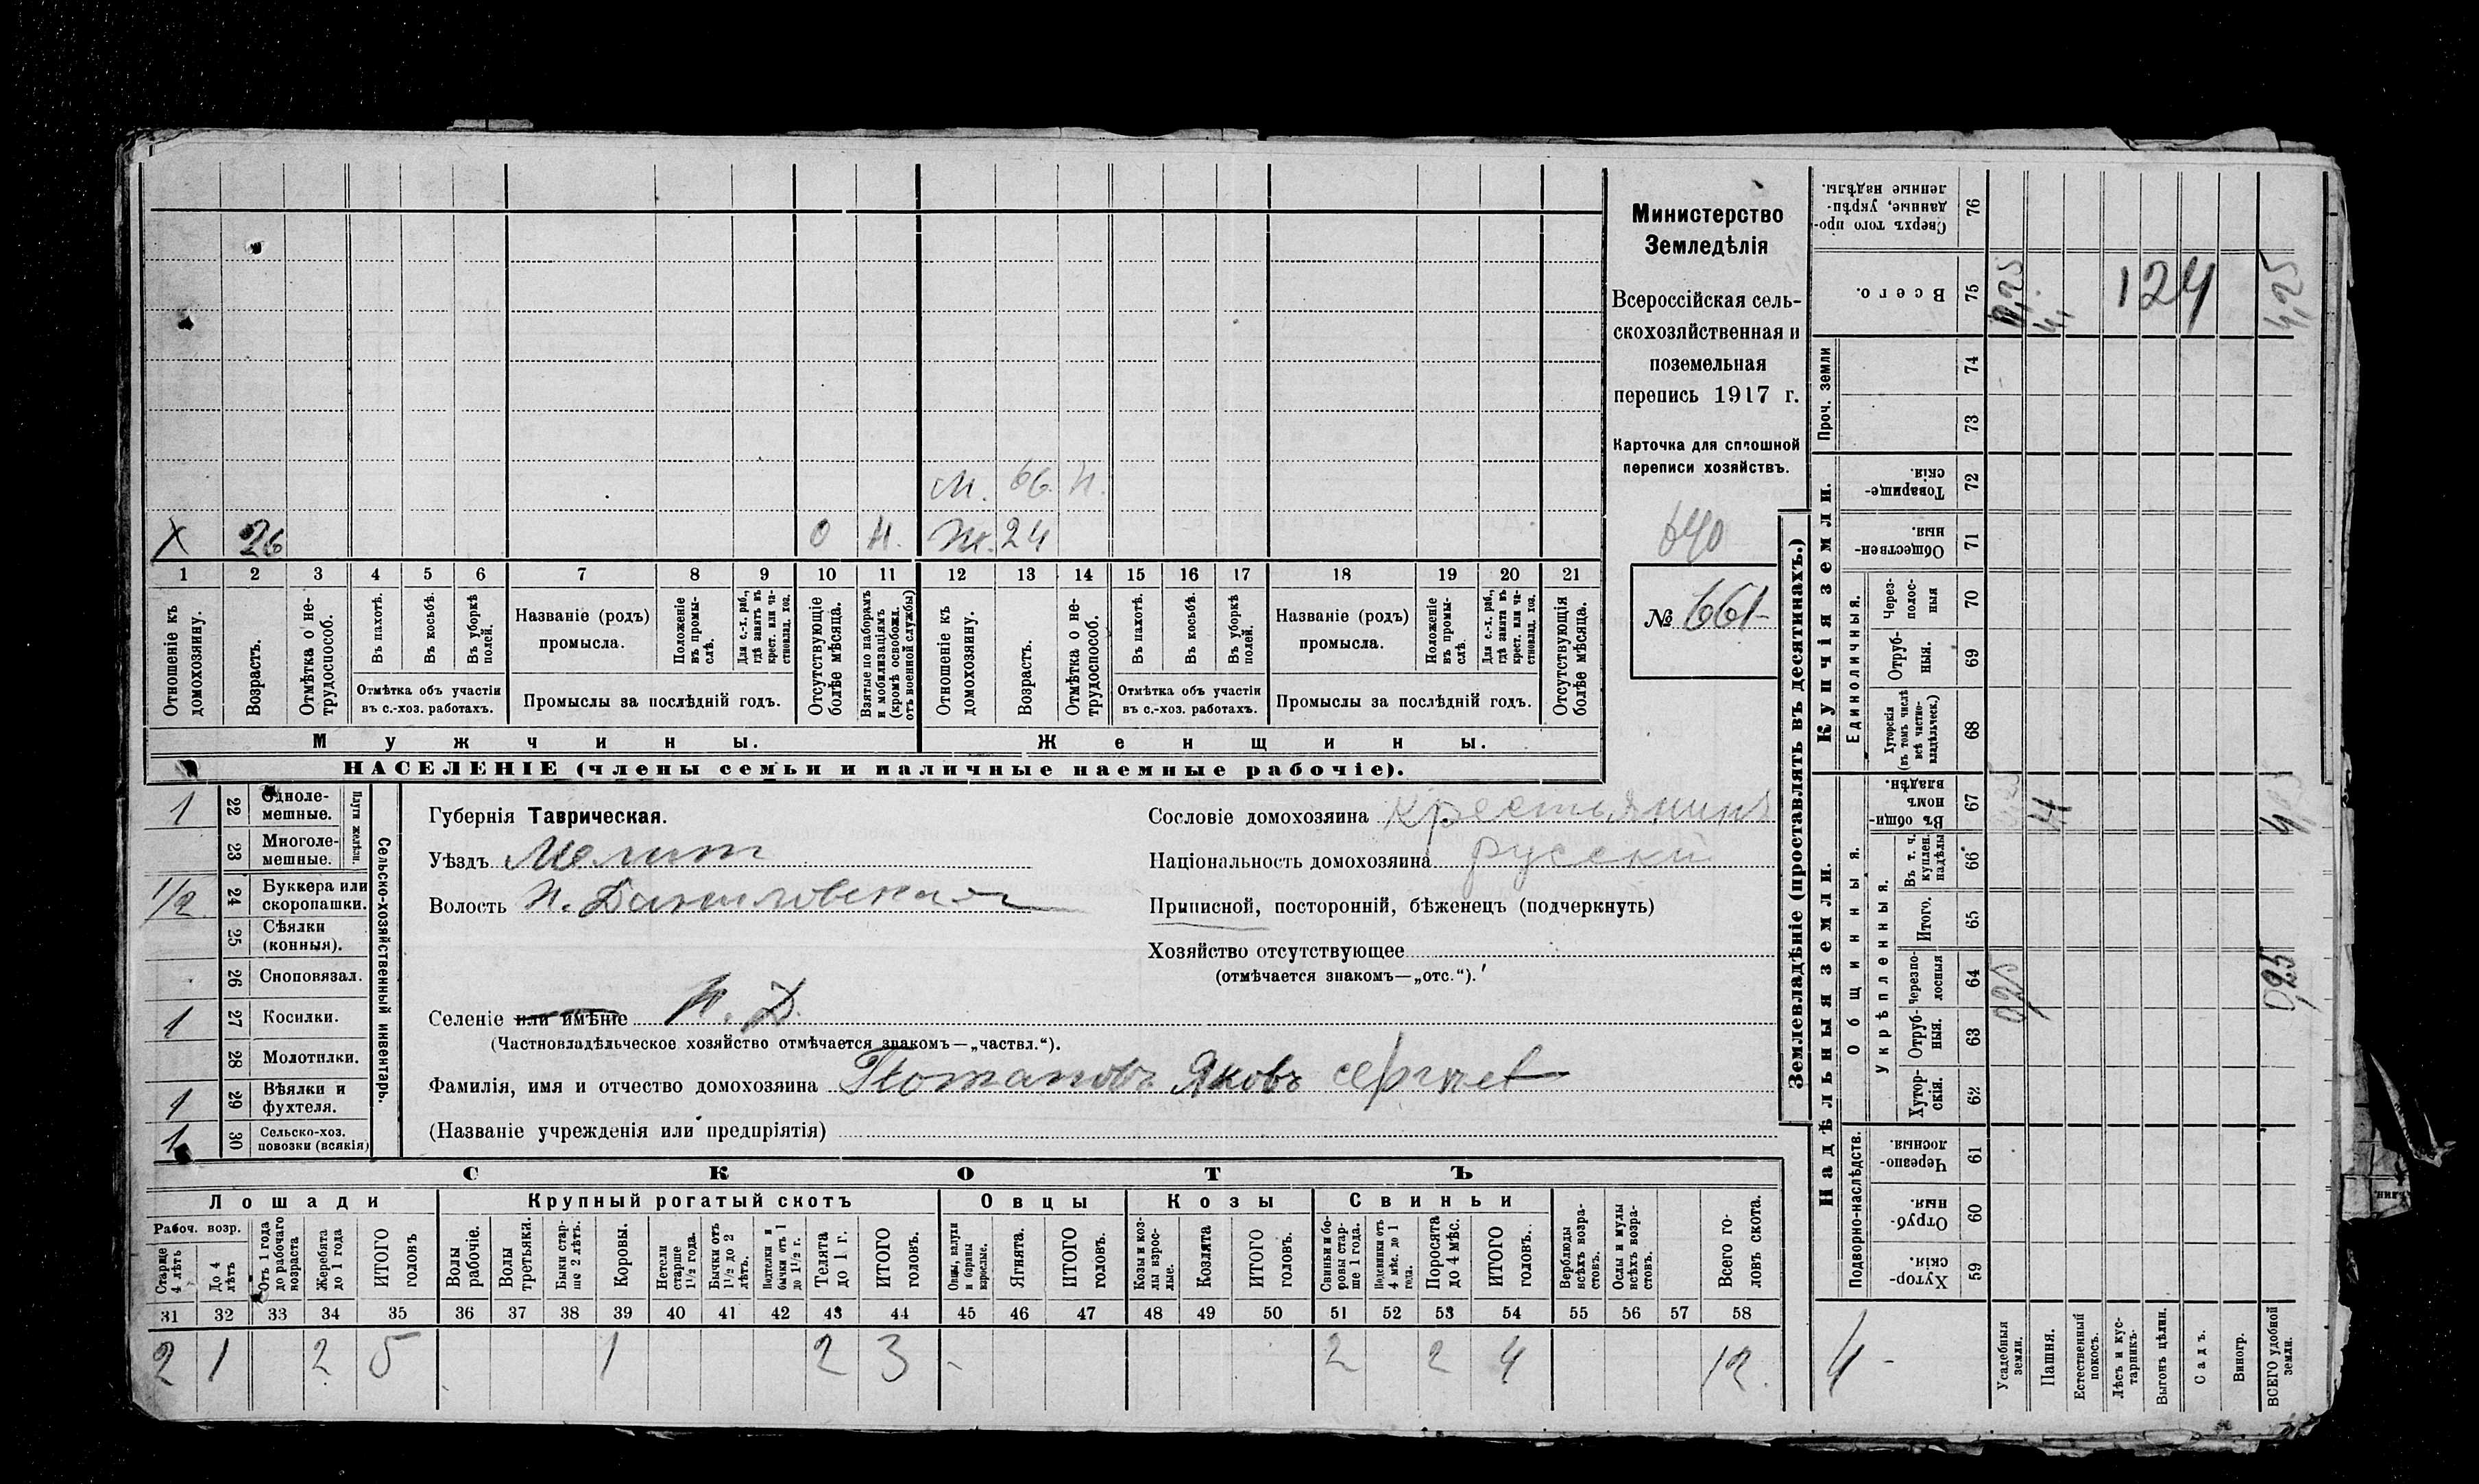 X 26 0 Н. М. 66 Н.
Ж. 24
1 2 3 4 5 6 7 8 9 10 11 12 13 14 15 16 17 18 19 20 21
Отношеніе къ домохозяину.
Возрастъ.
Отмѣтка о не-трудоспособ.
Въ пахотѣ.
Въ косьбѣ.
Въ уборкѣ полей.
Отмѣтка объ участіи
въ с.-хоз. работахъ.
Названіе (родъ)
промысла.
Положеніе въ промы-слѣ.
Для с.-х. раб., гдѣ занятъ въ крест. или ча-стновлад. хоз.
Промыслы за послѣдній годъ.
Отсутствующіе болѣе мѣсяца.
Взятые по наборамъ и мобилизаціямъ (кромѣ освобожд. отъ военной службы)
Отношеніе къ домохозяину.
Возрастъ.
Отмѣтка о не-трудоспособ.
Въ пахотѣ.
Въ косьбѣ.
Въ уборкѣ полей.
Отмѣтка объ участіи
въ с.-хоз. работахъ.
Названіе (родъ)
промысла.
Положеніе въ промы-слѣ.
Для с.-х. раб., гдѣ занята въ крест. или ча-стновлад. хоз.
Промыслы за послѣдній годъ.
Отсутствующія болѣе мѣсяца.
Мужчины.
Женщины.
НАСЕЛЕНІЕ (члены семьи и наличные наемные рабочіе).
Министерство
Земледѣлія
Всероссійская сель-
скохозяйственная и
поземельная
перепись 1917 г.
Карточка для сплошной
переписи хозяйствъ.
640
№ 661
1 22 Одноле-мешные.
23 Многоле-мешные.
Плуги желѣзн.
1/2 24 Буккера или скоропашки.
25 Сѣялки (конныя).
26 Сноповязал.
1 27 Косилки.
28 Молотилки.
1 29 Вѣялки и фухтеля.
1 30 Сельско-хоз. повозки (всякія)
Сельско-хозяйственный инвентарь.
Губернія Таврическая.
Уѣздъ Мелит
Волость Н. Даниловская
Селеніе или имѣніе Н. Д.
(Частновладѣльческое хозяйство отмѣчается знакомъ—„частвл.“).
Фамилія, имя и отчество домохозяина Потаповъ Яковъ Сергѣев
(Названіе учрежденія или предпріятія)
Сословіе домохозяина Крестьянинъ
Національность домохозяина русскій
Приписной, посторонній, бѣженецъ (подчеркнуть)
Хозяйство отсутствующее
(отмѣчается знакомъ—„отс.“).
СКОТЪ
Лошади
Крупный рогатый скотъ
Овцы
Козы
Свиньи
Рабоч. возр.
Старше 4 лѣтъ
До 4 лѣтъ
Отъ 1 года до рабочаго возраста
Жеребята до 1 года
ИТОГО головъ
Волы рабочіе.
Волы третьяки.
Быки стар-ше 2 лѣтъ.
Коровы.
Нетели старше 1½ года.
Бычки отъ 1½ до 2 лѣтъ.
Подтелки и бычки отъ 1 до 1½ г.
Телята до 1 г.
ИТОГО головъ.
Овцы, валухи и бараны взрослые.
Ягнята.
ИТОГО головъ.
Козы и коз-лы взрос-лые.
Козлята
ИТОГО головъ.
Свиньи и бо-ровы стар-ше 1 года.
Подсвинки отъ 4 мѣс. до 1 года.
Поросята до 4 мѣс.
ИТОГО головъ.
Верблюды всѣхъ возра-стовъ.
Ослы и мулы всѣхъ возра-стовъ.
Всего го-ловъ скота.
31 32 33 34 35 36 37 38 39 40 41 42 43 44 45 46 47 48 49 50 51 52 53 54 55 56 57 58
2 1 2 5 1 2 3 - 2 2 4 12.
Землевладѣніе (проставлять въ десятинахъ.)
Надѣльныя земли.
Купчія земли.
Проч. земли
Подворно-наслѣдств.
Общинныя.
Укрѣпленныя.
Единоличныя.
Сверхъ того про-данные, укрѣп-ленные надѣлы. 76
Всего. 75 4, 124 4,25
74
73
Товарище-скія. 72
Обществен-ныя 71
Через-полос-ныя 70
Отруб-ныя. 69
Хуторскія (въ томъ числѣ всѣ частно-владѣльческ.) 68
Въ общи-номъ владѣн. 67 4
Въ т. ч. куплен. надѣлы 66
Итого. 65
Черезпо-лосныя 64 0,25 0,25
Отруб-ныя. 63
Хутор-скія. 62
Черезпо-лосныя. 61
Отруб-ныя. 60
Хутор-скія. 59
4 -
Усадебныя земли.
Пашня.
Естественный покосъ.
Лѣсъ и кус-тарникъ.
Выгонъ цѣлин.
Садъ.
Виногр.
ВСЕГО удобной земли.